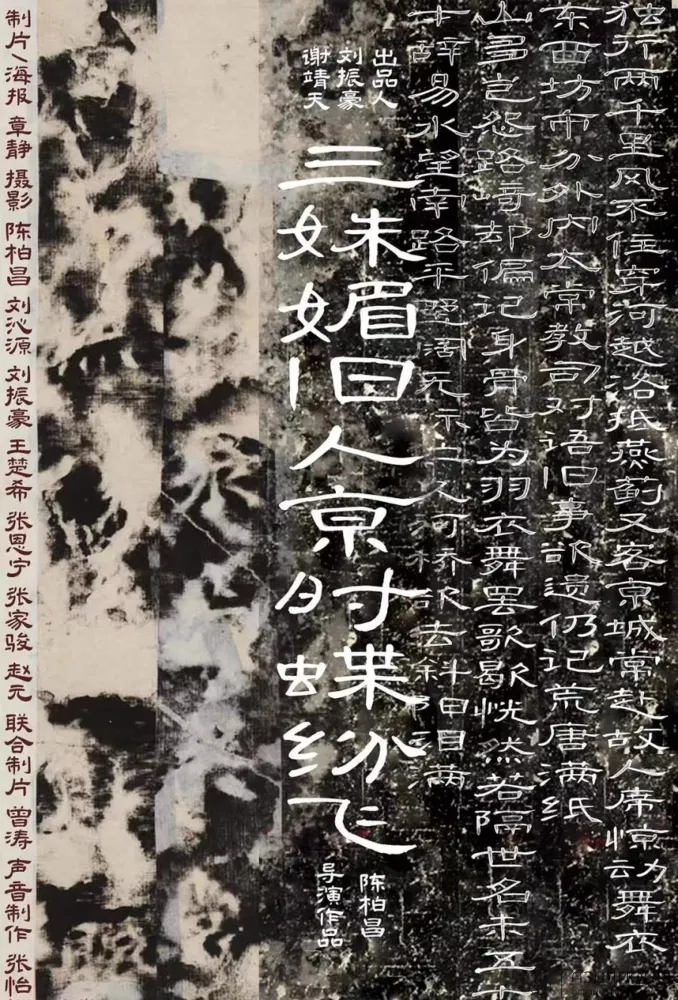 独行两千里风不住穿河越洛抵燕蓟又客京城常赴故人席惊动舞衣
东西坊市分外内太常教司对语旧事欲遗仍记荒唐满纸
山多岂怨路崎却偏记身骨皆为羽衣舞罢歌歇恍然若隔世名未五十
辞易水望南路平阔无示又河桥欲去斜日泪满
出品人
刘振豪
谢靖天
三姝媚旧人京时蝶纷飞
陈柏昌
导演作品
制片/海报 章静 摄影 陈柏昌 刘沁源 刘振豪 王楚希 张恩宁 张家骏 赵元 联合制片 曾涛 声音制作 张怡